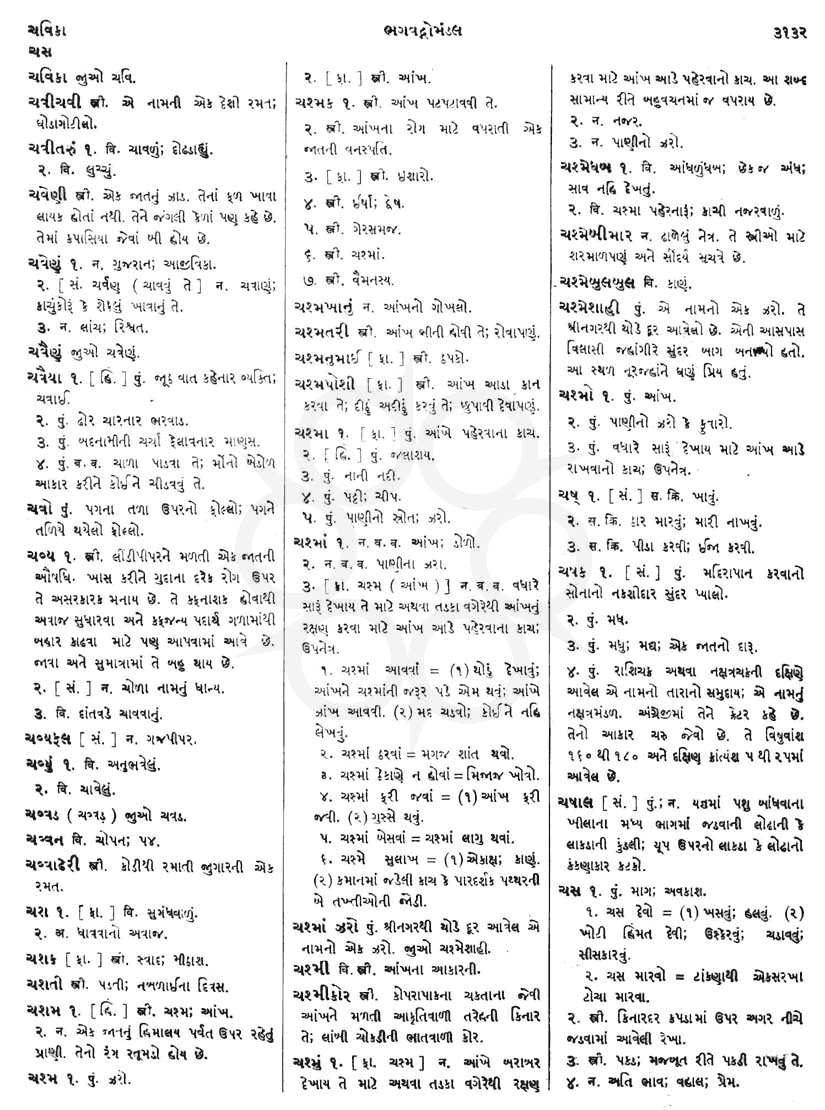 ચવિકા
ભગવદ્ગોમંડલ
૩૧૩૨
ચસ
ચવિકા જુઓ ચવિ.
ચવીચવી સ્ત્રી. એ નામની એક દેશી રમત;
ઘોડાગોટીલો.
૧. વિ. ચાવળું; દોઢડાહ્યું.
૨. વિ. લુચ્ચું.
ચવેણી સ્ત્રી. એક જાતનું ઝાડ. તેનાં ફળ ખાવા
લાયક હોતાં નથી. તેને જંગલી કેળાં પણ કહે છે.
તેમાં કપાસિયા જેવાં બી હોય છે.
ચવેણું ૧. ન. ગુજરાન; આજીવિકા.
૨. [ સં. ચર્વણ ( ચાવવું તે ) ] ન. ચવાણું;
કાચુંકોરું કે શેકેલું ખાવાનું તે.
૩. ન. લાંચ; રિશ્વત.
ચવૈણું જુઓ ચવેણું.
ચવૈયા ૧. [ હિં. ] પું. જૂઠ્ઠ વાત કહેનાર વ્યક્તિ;
ચવાઈ.
૨. પું. ઢોર ચારનાર ભરવાડ.
૩. પું. બદનામીની ચર્ચા ફેલાવનાર માણસ.
૪. પું. બ. વ. ચાળા પાડવા તે; મોંનો બેડોળ
આકાર કરીને કોઈને ચીડવવું તે.
ચવો પું. પગના તળા ઉપરનો ફોલ્લો; પગને
તળિયે થયેલો ફોલ્લો.
ચવ્ય ૧. સ્ત્રી. લીંડીપીપરને મળતી એક જાતની
ઔષધિ. ખાસ કરીને ગુદાના દરેક રોગ ઉપર
તે અસરકારક મનાય છે. તે કફનાશક હોવાથી
અવાજ સુધારવા અને કફજન્ય પદાર્થ ગળામાંથી
બહાર કાઢવા માટે પણ આપવામાં આવે છે.
જાવા અને સુમાત્રામાં તે બહુ થાય છે.
૨. [ સં. ] ન. ચોળા નામનું ધાન્ય.
૩. વિ. દાંતવડે ચાવવાનું.
ચવ્યફલ [ સં. ] ન. ગજપીપર.
ચવ્યું ૧. વિ. અનુભવેલું.
૨. વિ. ચાવેલું.
ચવ્વડ ( ચવ્વડ઼ ) જુઓ ચવડ.
ચવ્વન વિ. ચોપન; ૫૪.
ચવ્વાઢેરી સ્ત્રી. કોડીથી રમાતી જુગારની એક
રમત.
ચશ ૧. [ ફા. ] વિ. સુગંધવાળું.
૨. અ. ધાવવાનો અવાજ.
ચશક [ ફા. ] સ્ત્રી. સ્વાદ; મીઠાશ.
ચશતી સ્ત્રી. પડતી; નબળાઈના દિવસ.
ચશમ ૧. [ હિં. ] સ્ત્રી. ચશ્મ; આંખ.
૨. ન. એક જાતનું હિમાલય પર્વત ઉપર રહેતું
પ્રાણી. તેનો રંગ રતૂમડો હોય છે.
ચશ્મ ૧. પું. ઝરો.
૨. [ ફા. ] સ્ત્રી. આંખ.
ચશ્મક ૧. સ્ત્રી. આંખ પટપટાવવી તે.
૨. સ્ત્રી. આંખના રોગ માટે વપરાતી એક
જાતની વનસ્પતિ.
૩. [ ફા. ] સ્ત્રી. ઇશારો.
૪. સ્ત્રી. ઈર્ષા; દ્વેષ.
૫. સ્ત્રી. ગેરસમજ.
૬. સ્ત્રી. ચશ્માં.
૭. સ્ત્રી. વૈમનસ્ય.
ચશ્મખાનું ન. આંખનો ગોખલો.
ચશ્મતરી સ્ત્રી. આંખ ભીની હોવી તે; રોવાપણું.
ચશ્મનુમાઈ [ ફા. ] સ્ત્રી. ઠપકો.
ચશ્મપોશી [ ફા. ] સ્ત્રી. આંખ આડા કાન
કરવા તે; દીઠું અદીઠું કરવું તે; છુપાવી દેવાપણું.
ચશ્મા ૧. [ ફા. ] પું. આંખે પહેરવાના કાચ.
૨. [ હિં. ] પું. જલાશય.
૩. પું. નાની નદી.
૪. પું. પટ્ટી; ચીપ.
૫. પું. પાણીનો સ્રોત; ઝરો.
ચશ્માં ૧. ન. બ. વ. આંખ; ડોળો.
૨. ન. બ. વ. પાણીના ઝરા.
૩. [ ફા. ચશ્મ ( આંખ ) ] ન. બ. વ. વધારે
સારું દેખાય તે માટે અથવા તડકા વગેરેથી આંખનું
રક્ષણ કરવા માટે આંખ આડે પહેરવાના કાચ;
ઉપનેત્ર.
૧. ચશ્માં આવવાં = (૧) થોડું દેખાવું;
આંખને ચશ્માંની જરૂર પડે એમ થવું; આંખે
ઝાંખ આવવી. (૨) મદ ચડવો; કોઈને નહિ
લેખવું.
૨. ચશ્માં ઠરવાં = મગજ શાંત થવો.
૩. ચશ્માં ઠેકાણે ન હોવાં = મિજાજ ખોવો.
૪. ચશ્માં ફરી જવાં = (૧) આંખ ફરી
જવી. (૨) ગુસ્સે થવું.
૫. ચશ્માં બેસવાં = ચશ્માં લાગુ થવાં.
૬. ચશ્મે સુલાખ = (૧) એકાક્ષ; કાણું.
(૨) કમાનમાં જડેલી કાચ કે પારદર્શક પથ્થરની
બે તખ્તીઓની જોડી.
ચશ્માં ઝરો પું. શ્રીનગરથી થોડે દૂર આવેલ એ
નામનો એક ઝરો. જુઓ ચશ્મેશાહી.
ચશ્મી વિ. સ્ત્રી. આંખના આકારની.
ચશ્મીકોર સ્ત્રી. કોપરાપાકના ચકતાના જેવી
આંખને મળતી આકૃતિવાળી તરેહની કિનાર
તે; લાંબી ચોકડીની ભાતવાળી કોર.
ચશ્મું ૧. [ ફા. ચશ્મ ] ન. આંખે બરાબર
દેખાય તે માટે અથવા તડકા વગેરેથી રક્ષણ
કરવા માટે આંખ આડે પહેરવાનો કાચ. આ શબ્દ
સામાન્ય રીતે બહુવચનમાં જ વપરાય છે.
૨. ન. નજર.
૩. ન. પાણીનો ઝરો.
ચશ્મેધબ ૧. વિ. આંધળુંધબ; છેક જ અંધ;
સાવ નહિ દેખતું.
૨. વિ. ચશ્મા પહેરનારું; કાચી નજરવાળું.
ચશ્મેબીમાર ન. ઢાળેલું નેત્ર. તે સ્ત્રીઓ માટે
શરમાળપણું અને સૌંદર્ય સૂચવે છે.
ચશ્મેબુલબુલ વિ. કાણું.
ચશ્મેશાહી પું. એ નામનો એક ઝરો. તે
શ્રીનગરથી થોડે દૂર આવેલો છે. એની આસપાસ
વિલાસી જહાંગીરે સુંદર બાગ બનાવ્યો હતો.
આ સ્થળ નૂરજહાંને ઘણું પ્રિય હતું.
ચશ્મો ૧. પું. આંખ.
૨. પું. પાણીનો ઝરો કે ફુવારો.
૩. પું. વધારે સારું દેખાય માટે આંખ આડે
રાખવાનો કાચ; ઉપનેત્ર.
ચષ્ ૧. [ સં. ] સ. ક્રિ. ખાવું.
૨. સ. ક્રિ. ઠાર મારવું; મારી નાખવું.
૩. સ. ક્રિ. પીડા કરવી; ઈજા કરવી.
ચષક ૧. [ સં. ] પું. મદિરાપાન કરવાનો
સોનાનો નકશીદાર સુંદર પ્યાલો.
૨. પું. મધ.
૩. પું. મધુ; મદ્ય; એક જાતનો દારૂ.
૪. પું. રાશિચક્ર અથવા નક્ષત્રચક્રની દક્ષિણે
આવેલ એ નામનો તારાનો સમુદાય; એ નામનું
નક્ષત્રમંડળ. અંગ્રેજીમાં તેને ક્રેટર કહે છે.
તેનો આકાર ચરુ જેવો છે. તે વિષુવાંશ
૧૬૦ થી ૧૮૦ અને દક્ષિણ ક્રાંત્યંશ ૫ થી ૨૫માં
આવેલ છે.
ચષાલ [ સં. ] પું.; ન. યજ્ઞમાં પશુ બાંધવાના
ખીલાના મધ્ય ભાગમાં જડવાની લોઢાની કે
લાકડાની કુંડલી; યૂપ ઉપરનો લાકડા કે લોઢાનો
કંકણાકાર કટકો.
ચસ ૧. પું. માગ; અવકાશ.
૧. ચસ દેવો = (૧) ખસવું; હલવું. (૨)
ખોટી હિંમત દેવી; ઉશ્કેરવું; ચડાવવું;
સીસકારવું.
૨. ચસ મારવો = ટાંકણાથી એકસરખા
ટોચા મારવા.
૨. સ્ત્રી. કિનારદર કપડામાં ઉપર અગર નીચે
જડવામાં આવેલી રેખા.
૩. સ્ત્રી. પકડ; મજબૂત રીતે પકડી રાખવું તે.
૪. ન. અતિ ભાવ; વહાલ; પ્રેમ.